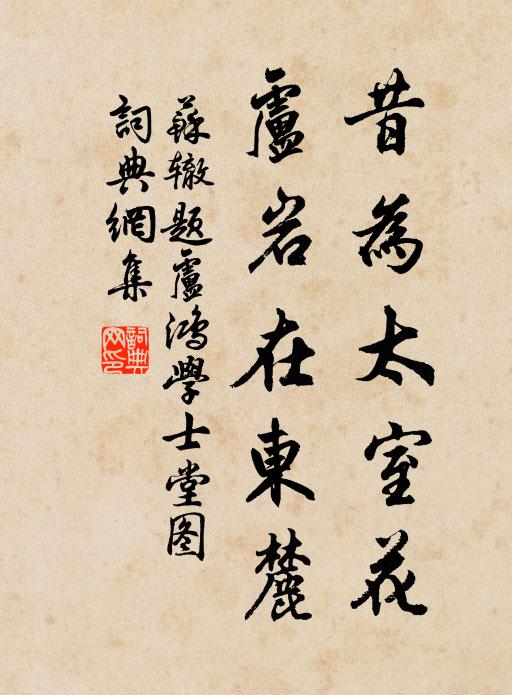 昔為太室花
盧岩在東麓
蘇辙题盧鴻學士堂图
詞典網集
詞典網印